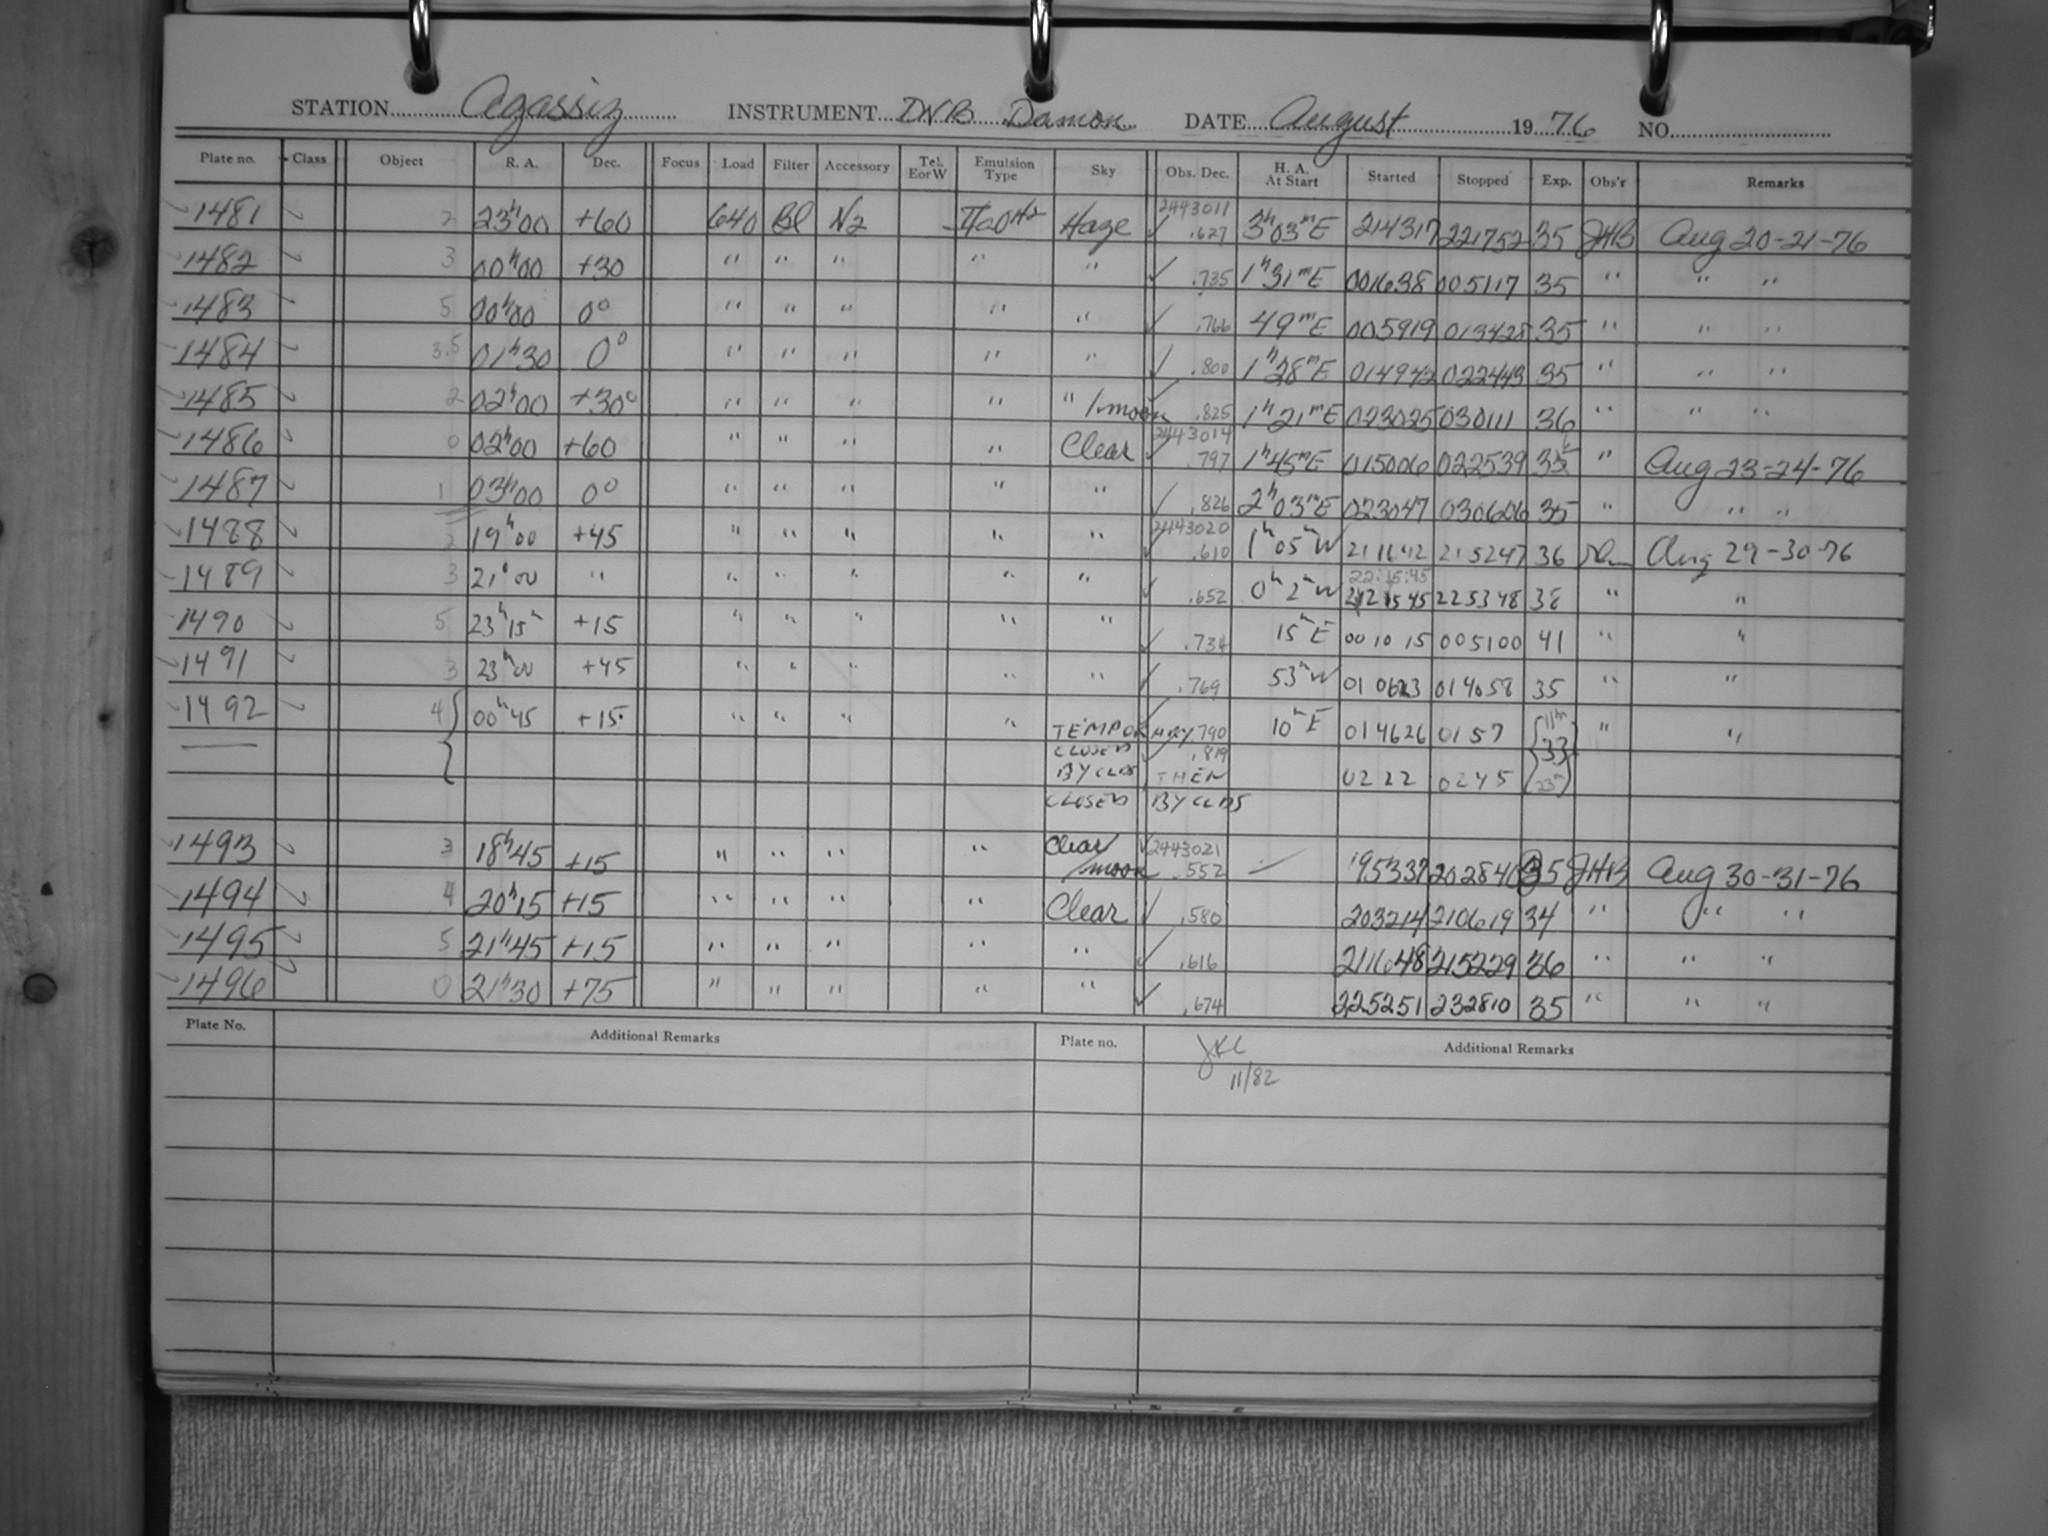 STATION Agassiz INSTRUMENT DNB Damon DATE August 1976 NO.
Plate no. Class Object R. A. Dec. Focus Load Filter Accessory Tel. E or W Emulsion Type Sky Obs. Dec. H. A. At Start Started Stopped Exp. Obs'r Remarks
1481 2 23h00 +60 640 Bl N2 IIaO H2 Haze 2443011 .627 3h03mE 214317 221752 35 JHB Aug 20-21-76
1482 3 00h00 +30 " " " " " .735 1h31mE 001638 005117 35 " " "
1483 5 00h00 0° " " " " " .766 49mE 005919 013428 35 " " "
1484 3.5 01h30 0° " " " " " .800 1h28mE 014942 022443 35 " " "
1485 2 02h00 +30° " " " " " /moon .825 1h21mE 023025 030111 36 " " "
1486 0 02h00 +60 " " " " Clear 2443014 .797 1h45mE 015006 022539 35 " Aug 23-24-76
1487 1 03h00 0° " " " " " .826 2h03mE 023047 030606 35 " " "
1488 2 19h00 +45 " " " " " 2443020 .610 1h05mW 211642 215247 36 Aug 29-30-76
1489 3 21h00 " " " " " " .652 0h2mW 22:15:45 221545 225348 38 " "
1490 5 23h15m +15 " " " " " .734 15mE 00 10 15 005100 41 " "
1491 3 23h00 +45 " " " " " .769 53mW 010623 014058 35 " "
1492 4 00h45 +15 " " " " TEMPORARY .790 10mE 014626 0157 11m " "
CLOSED .819 33
BY CLDS THEN 0222 0245 23m
CLOSED BY CLDS
1493 3 18h45 +15 " " " " Clear /moon 2443021 .552 195337 202840 35 JHB Aug 30-31-76
1494 4 20h15 +15 " " " " Clear .580 203214 210619 34 " " "
1495 5 21h45 +15 " " " " " .616 211648 215229 36 " " "
1496 0 21h30 +75 " " " " " .674 225251 232810 35 " " "
Plate No. Additional Remarks Plate no. Additional Remarks
JKC
11/82